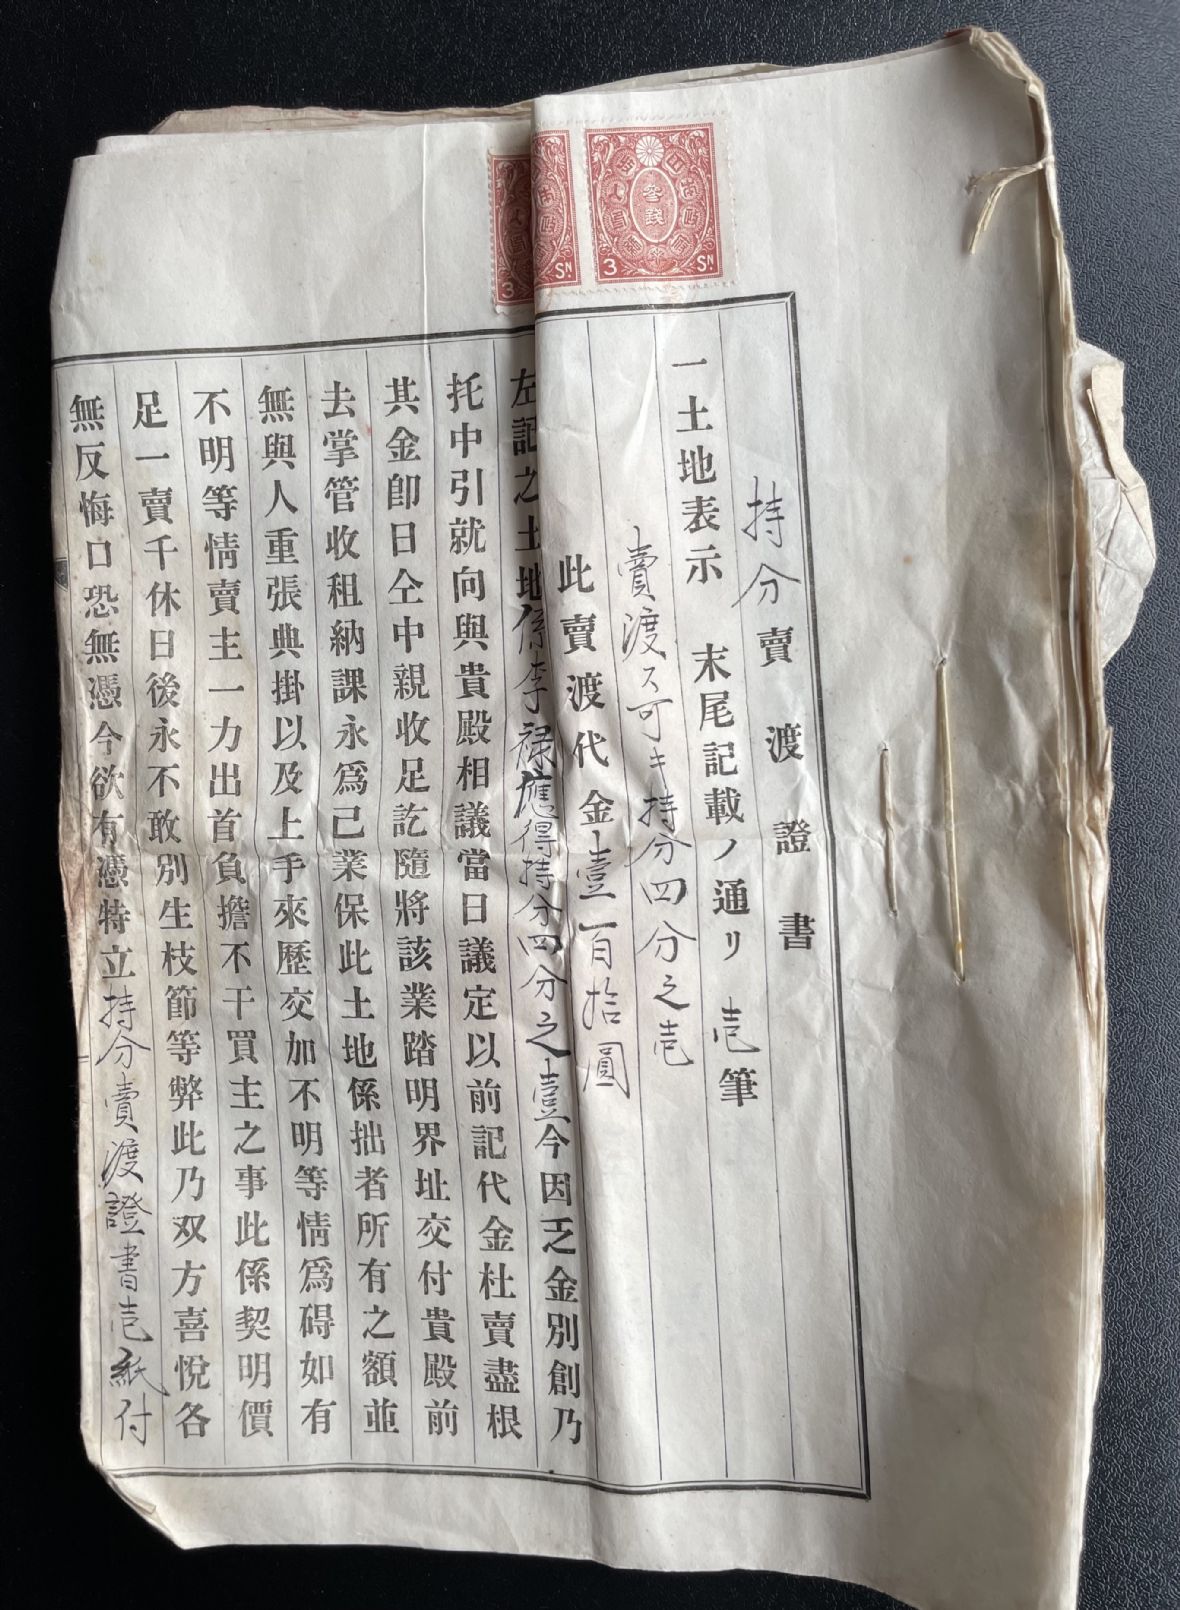 持分賣渡證書
一土地表示 末尾記載ノ通リ 壱筆
賣渡ス可キ持分四分之壱
此賣渡代金壹百拾圓
左記之土地係李禄應得持分四分之壹今因乏金別創乃
托中引就向與貴殿相議當日議定以前記代金杜賣盡根
其金卽日仝中親收足訖隨將該業踏明界址交付貴殿前
去掌管收租納課永爲己業保此土地係拙者所有之額並
無與人重張典掛以及上手來歷交加不明等情爲碍如有
不明等情賣主一力出首負擔不干買主之事此係契明價
足一賣千休日後永不敢別生枝節等弊此乃双方喜悅各
無反悔口恐無憑今欲有憑特立持分賣渡證書壱紙付
參錢
3 SN
3 SN